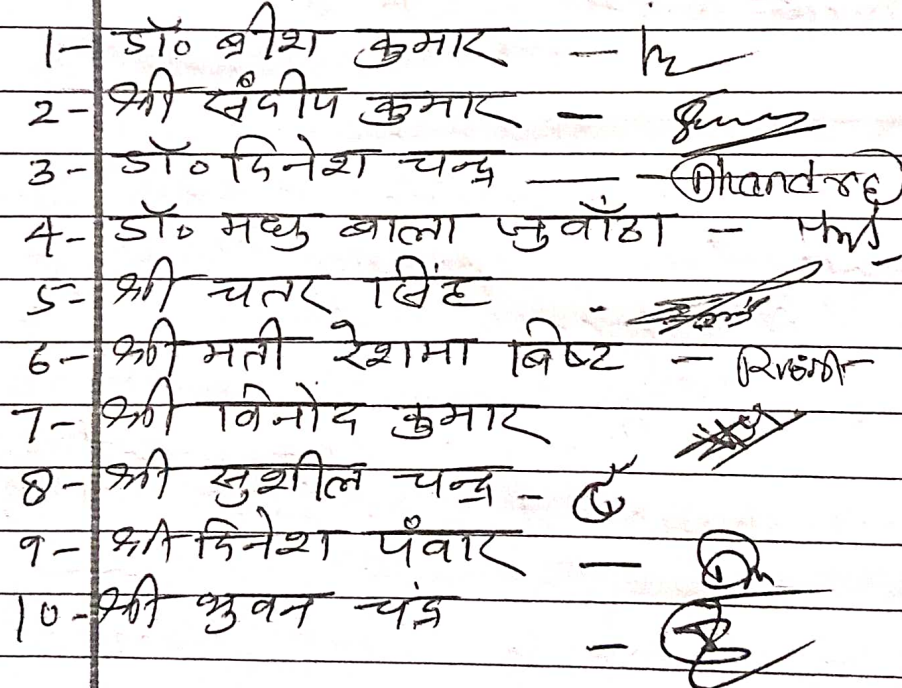 1- डॉ० बीश कुमार -
2- श्री संदीप कुमार -
3- डॉ० दिनेश चन्द्र - Dhandre
4- डॉ० मधु बाला जुवाँठा -
5- श्री चतर सिंह -
6- श्रीमती रेशमा बिष्ट -
7- श्री विनोद कुमार
8- श्री सुशील चन्द्र -
9- श्री दिनेश पँवार -
10- श्री भुवन चंद्र -